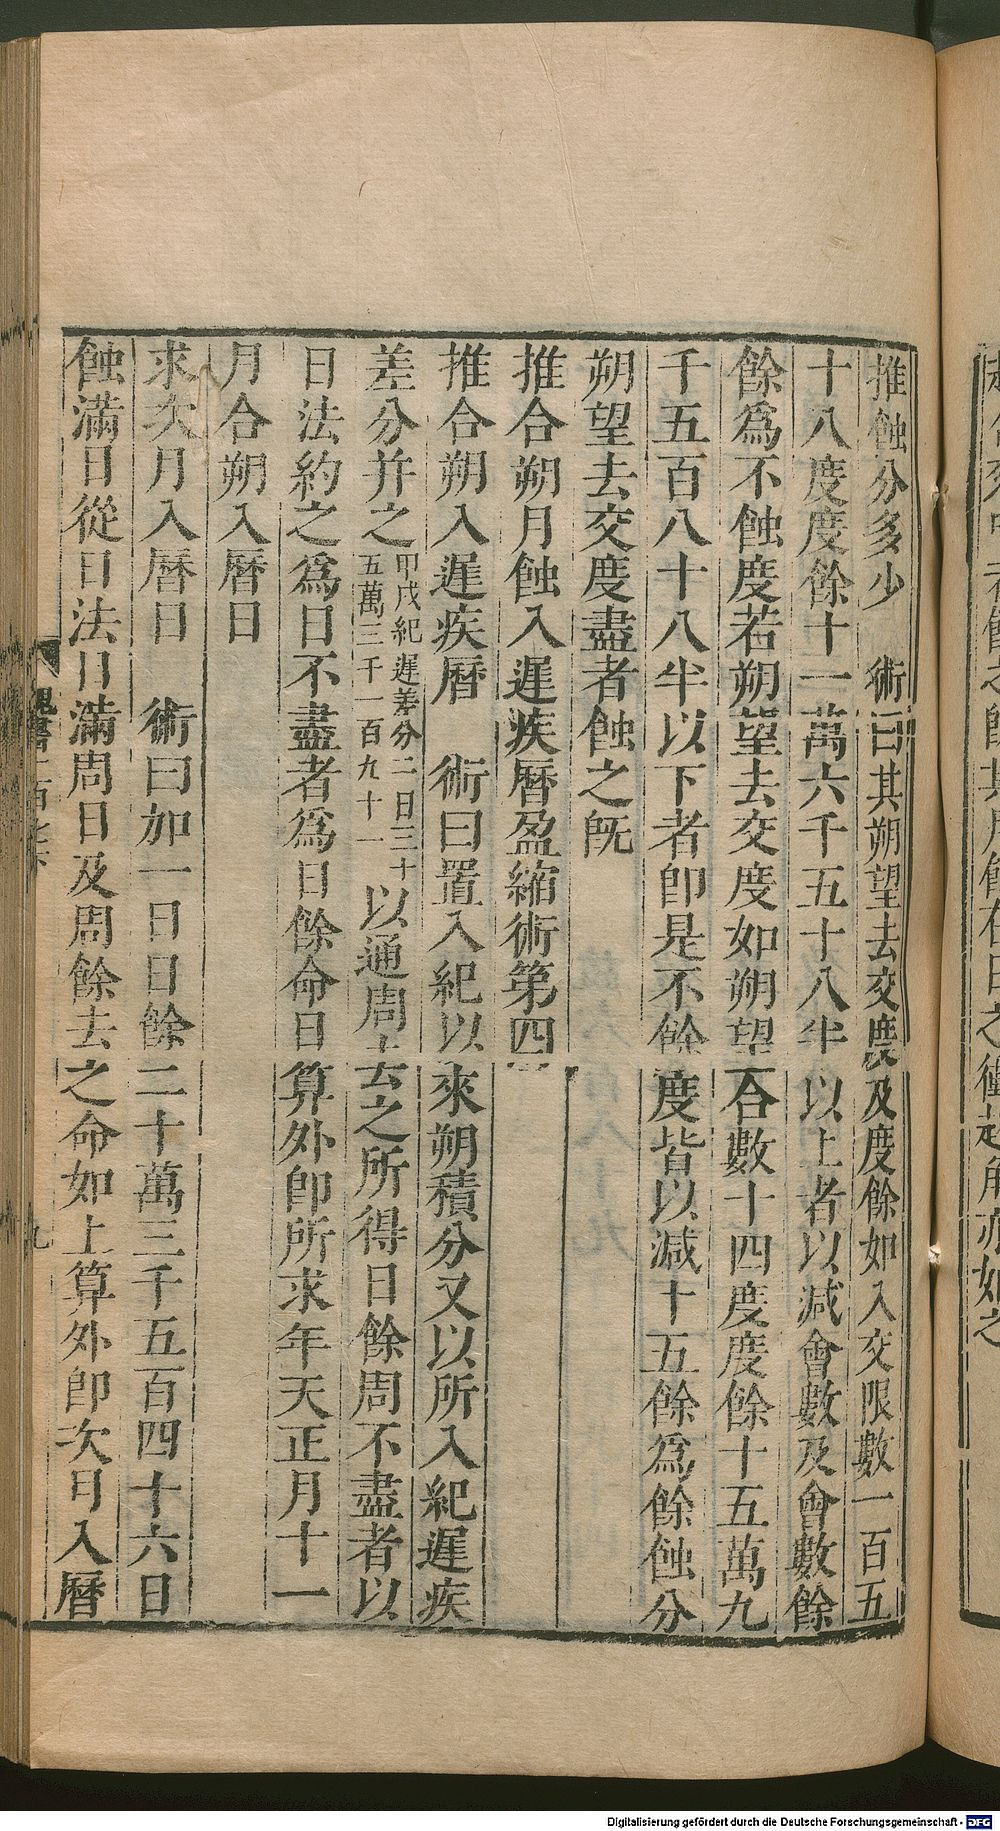 推蝕分多少　術曰其朔望去交度及度餘如入交限數一百五
十八度度餘十一萬六千五十八半以上者以減會數及會數餘
餘爲不蝕度若朔望去交度如朔望合數十四度度餘十五萬九
千五百八十八半以下者卽是不餘度皆以減十五餘爲餘蝕分
朔望去交度盡者蝕之旣
推合朔月蝕入遲疾曆盈縮術第四
推合朔入遲疾曆　術曰置入紀以來朔積分又以所入紀遲疾
差分并之甲戌紀遲差分二日三十五萬三千一百九十一以通周去之所得日餘周不盡者以
日法約之爲日不盡者爲日餘命日算外卽所求年天正月十一
月合朔入曆日
求次月入曆日　術曰加一日日餘二十萬三千五百四十六日
蝕滿日從日法日滿周日及周餘去之命如上算外卽次月入曆
魏書一百七下
九
Digitalisierung gefördert durch die Deutsche Forschungsgemeinschaft - DFG